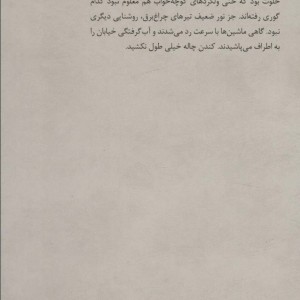 خلوت بود که حتی ولگردهای کوچه‌خواب هم معلوم نبود کدام
گوری رفته‌اند. جز نور ضعیف تیرهای چراغ‌برق، روشنایی دیگری
نبود. گاهی ماشین‌ها با سرعت رد می‌شدند و آب‌گرفتگی خیابان را
به اطراف می‌پاشیدند. کندن چاله خیلی طول نکشید.